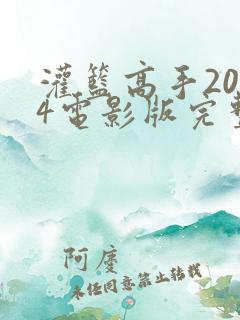 灌籃高手20
4電影版完整
阿慶
未任同意禁止转载